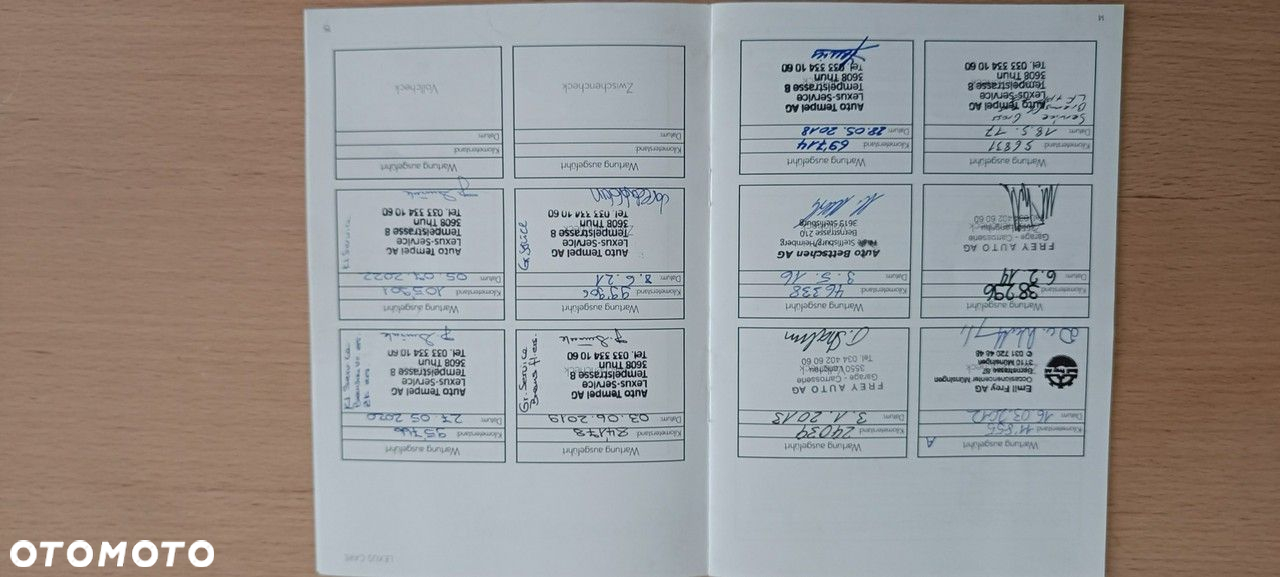 Wartung ausgeführt
A
Kilometerstand 11855
Datum: 16.03.2012
Emil Frey AG
Occasionscenter Münsingen
Bernstrasse 87
3110 Münsingen
✆ 031 720 46 46
Wartung ausgeführt
Kilometerstand 24039
Datum: 3.1.2013
FREY AUTO AG
Garage - Carrosserie
3550 Langnau
Tel. 034 402 60 60
Wartung ausgeführt
Kilometerstand 38296
Datum: 6.2.14
FREY AUTO AG
Garage - Carrosserie
3550 Langnau
Tel. 034 402 60 60
Wartung ausgeführt
Kilometerstand 46338
Datum: 3.5.16
Auto Bettschen AG
Steffisburg/Heimberg
Bernstrasse 210
3619 Steffisburg
Wartung ausgeführt
Kilometerstand 56831
Datum: 18.5.17
Service Gross
Auto Tempel AG
Lexus-Service
Tempelstrasse 8
3608 Thun
Tel. 033 334 10 60
Wartung ausgeführt
Kilometerstand 69714
Datum: 28.05.2018
Auto Tempel AG
Lexus-Service
Tempelstrasse 8
3608 Thun
Tel. 033 334 10 60
14
LEXUS CARE
Wartung ausgeführt
Kilometerstand 84178
Datum: 03.06.2019
Gr. Service
Auto Tempel AG
Lexus-Service
Tempelstrasse 8
3608 Thun
Tel. 033 334 10 60
Wartung ausgeführt
Kilometerstand
Datum: 27.05.2020
Kl Service
Auto Tempel AG
Lexus-Service
Tempelstrasse 8
3608 Thun
Tel. 033 334 10 60
Wartung ausgeführt
Kilometerstand
Datum: 8.6.21
Gr Service
Auto Tempel AG
Lexus-Service
Tempelstrasse 8
3608 Thun
Tel. 033 334 10 60
Wartung ausgeführt
Kilometerstand 105901
Datum: 05.07.2022
Kl Service
Auto Tempel AG
Lexus-Service
Tempelstrasse 8
3608 Thun
Tel. 033 334 10 60
Wartung ausgeführt
Kilometerstand
Datum:
Zwischencheck
Wartung ausgeführt
Kilometerstand
Datum:
Vollcheck
OTOMOTO